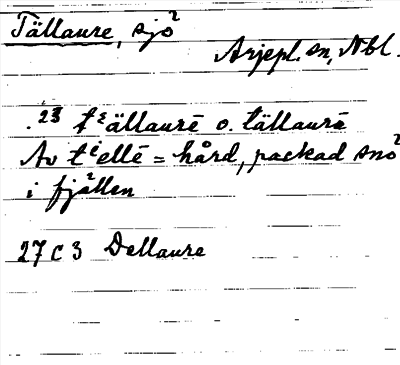 Tällaure, sjö
Arjepl. sn, Nbl.
.23 tⁱällaurē o. tällaurē
Av tⁱellē = hård, packad snö
i fjällen
27 C 3 Dellaure